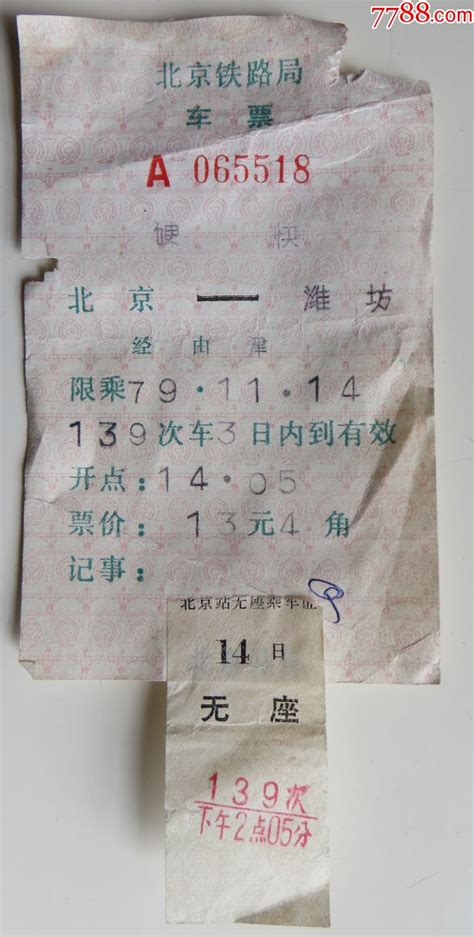 7788.com
北京铁路局
车票
A 065518
硬 快
北京 — 潍坊
经由 津
限乘79·11·14
139次车3日内到有效
开点:14·05
票价: 13元4角
记事:
北京站无座乘车证
14日
无座
139次
下午2点05分